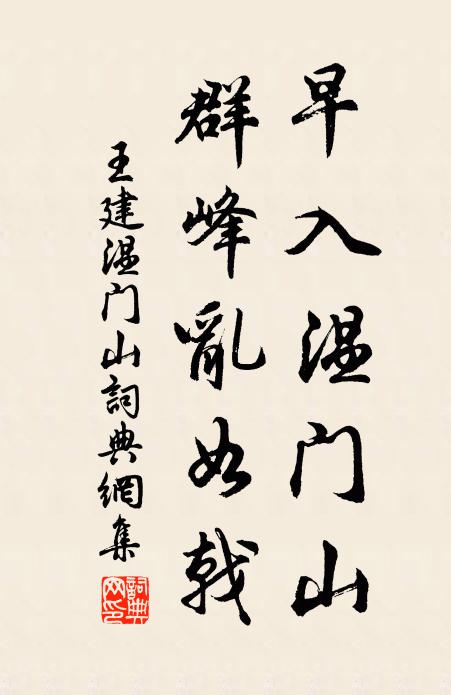 早入温门山
群峰亂如戟
王建温门山詞典網集
詞典网印